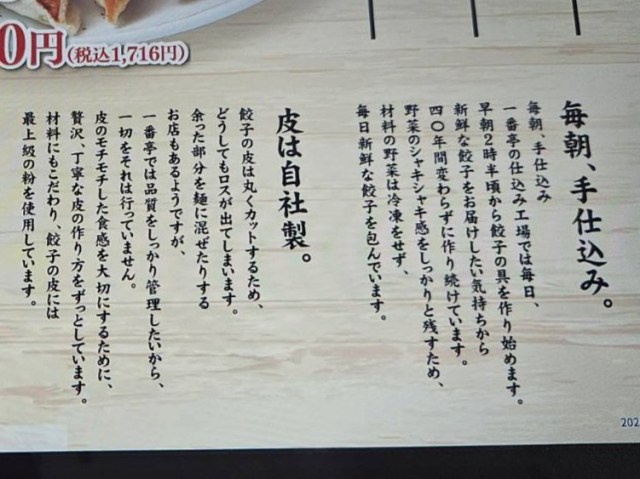 0円(税込1,716円)
毎朝、手仕込み。
毎朝、手仕込み
一番亭の仕込み工場では毎日、
早朝2時半頃から餃子の具を作り始めます。
新鮮な餃子をお届けしたい気持ちから
四〇年間変わらずに作り続けています。
野菜のシャキシャキ感をしっかりと残すため、
材料の野菜は冷凍をせず、
毎日新鮮な餃子を包んでいます。
皮は自社製。
餃子の皮は丸くカットするため、
どうしてもロスが出てしまいます。
余った部分を麺に混ぜたりする
お店もあるようですが、
一番亭では品質をしっかり管理したいから、
一切をそれは行っていません。
皮のモチモチした食感を大切にするために、
贅沢、丁寧な皮の作り方をずっとしています。
材料にもこだわり、餃子の皮には
最上級の粉を使用しています。
202